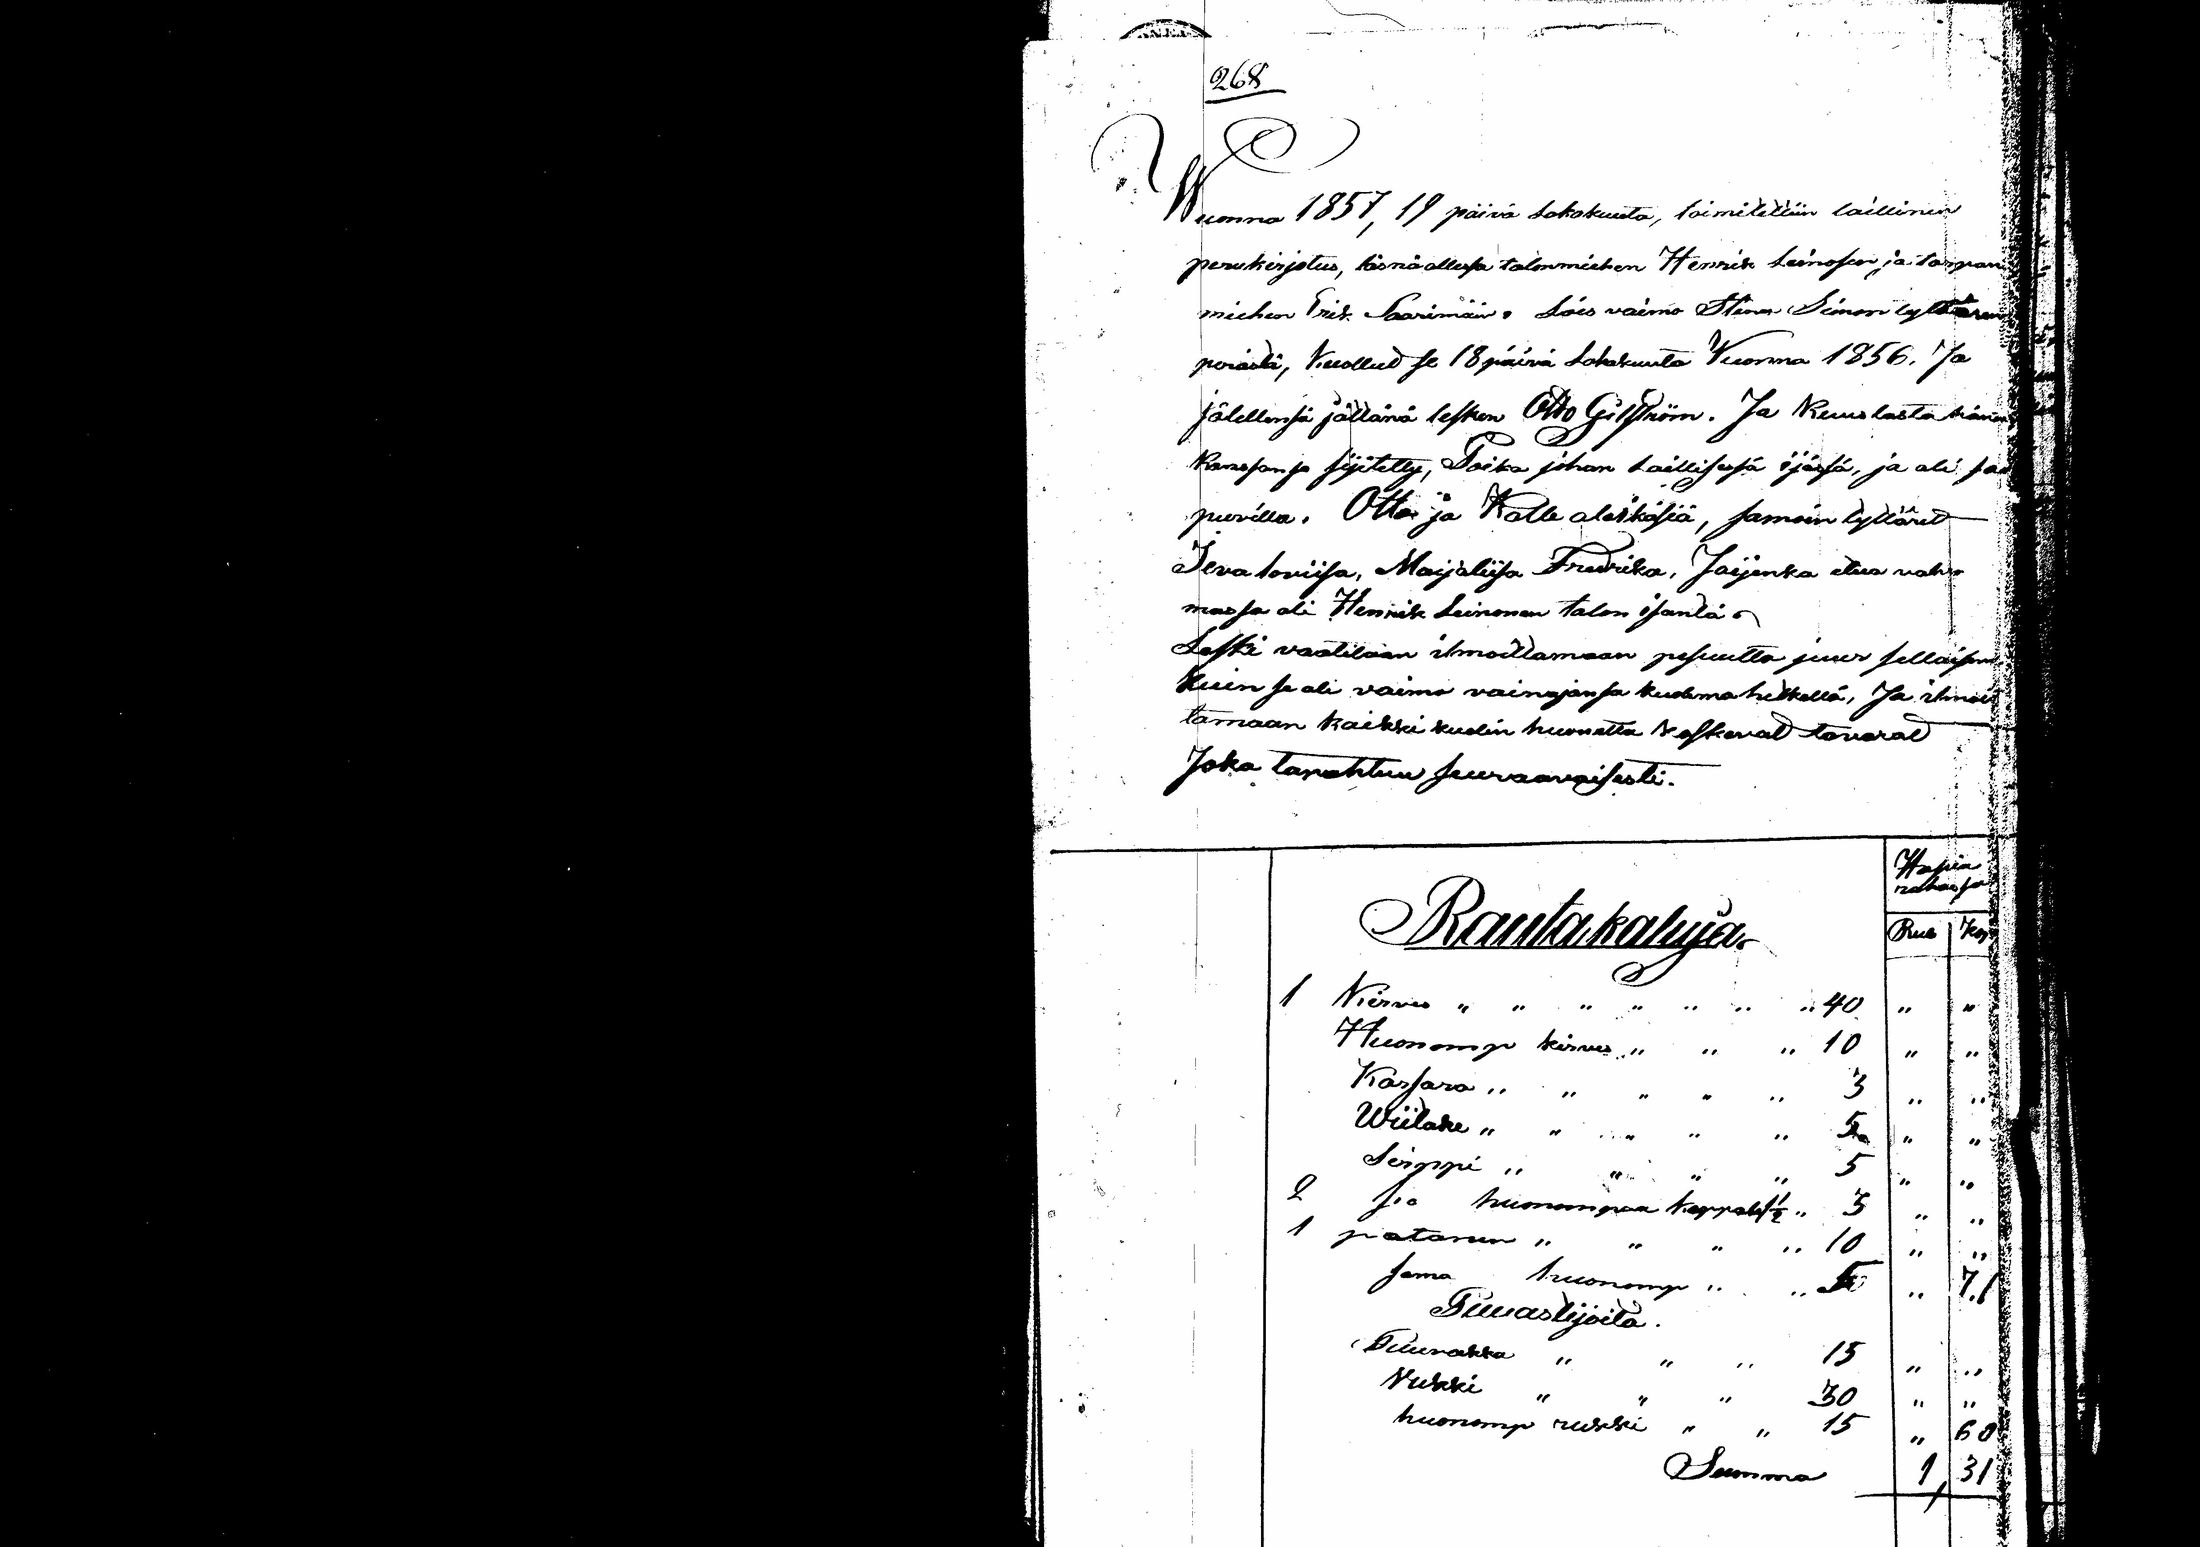 268
Wuonna 1857, 19 päivä Lokakuuta, toimitettiin laillinen
perukirjotus, läsnä ollessa talonmiehen Henrik Leinosen, ja tarpan
miehen Erik Saarimäin. Lois vaimo Stina Simon tyttären
perästä, kuollud se 18 päivä Lokakuuta Vuonna 1856. Ja
jälellensä jättänä lesken Otto Gilström. Ja kuus lasta hänen
kanssansa sijitetty, Poika johan laillisessä ijässä, ja ali
puvilla. Otto ja Kalle alaikäsiä, samoin tyttäred
Ieva loviisa, Maijaliisa Fredrika, Joijenka etua valvo
massa oli Henrik Leinonen talon isäntä.
Leski vaatitaan ilmoittamaan pesuutta juur sellaisena
kuin se oli vaimo vainajansa kuolema hetkellä, Ja ilmoit
tamaan kaikki kuolin huonetta koskevad tavarad
Joka tapahtuu seuraavaisesti.
Hopia
rahassa
Rautakaluja.
Rub Kop
1 Kirves " " " " " " " 40 " "
Huonomp kirves " " " 10 " "
Kassara " " " " " 3 " "
Wiilake " " " " " 5 " "
Sirppi " " " " 5 " "
2 huonompaa kappal 1 1/2 " 3 " "
1 patanen " " " " 10 " "
sama huonomp " " 5 " 71
Puuastijoita.
Puurakka " " " 15 " "
Rukki " " " 30 " "
huonomp rukki " " 15 " 60
Summa 1, 31